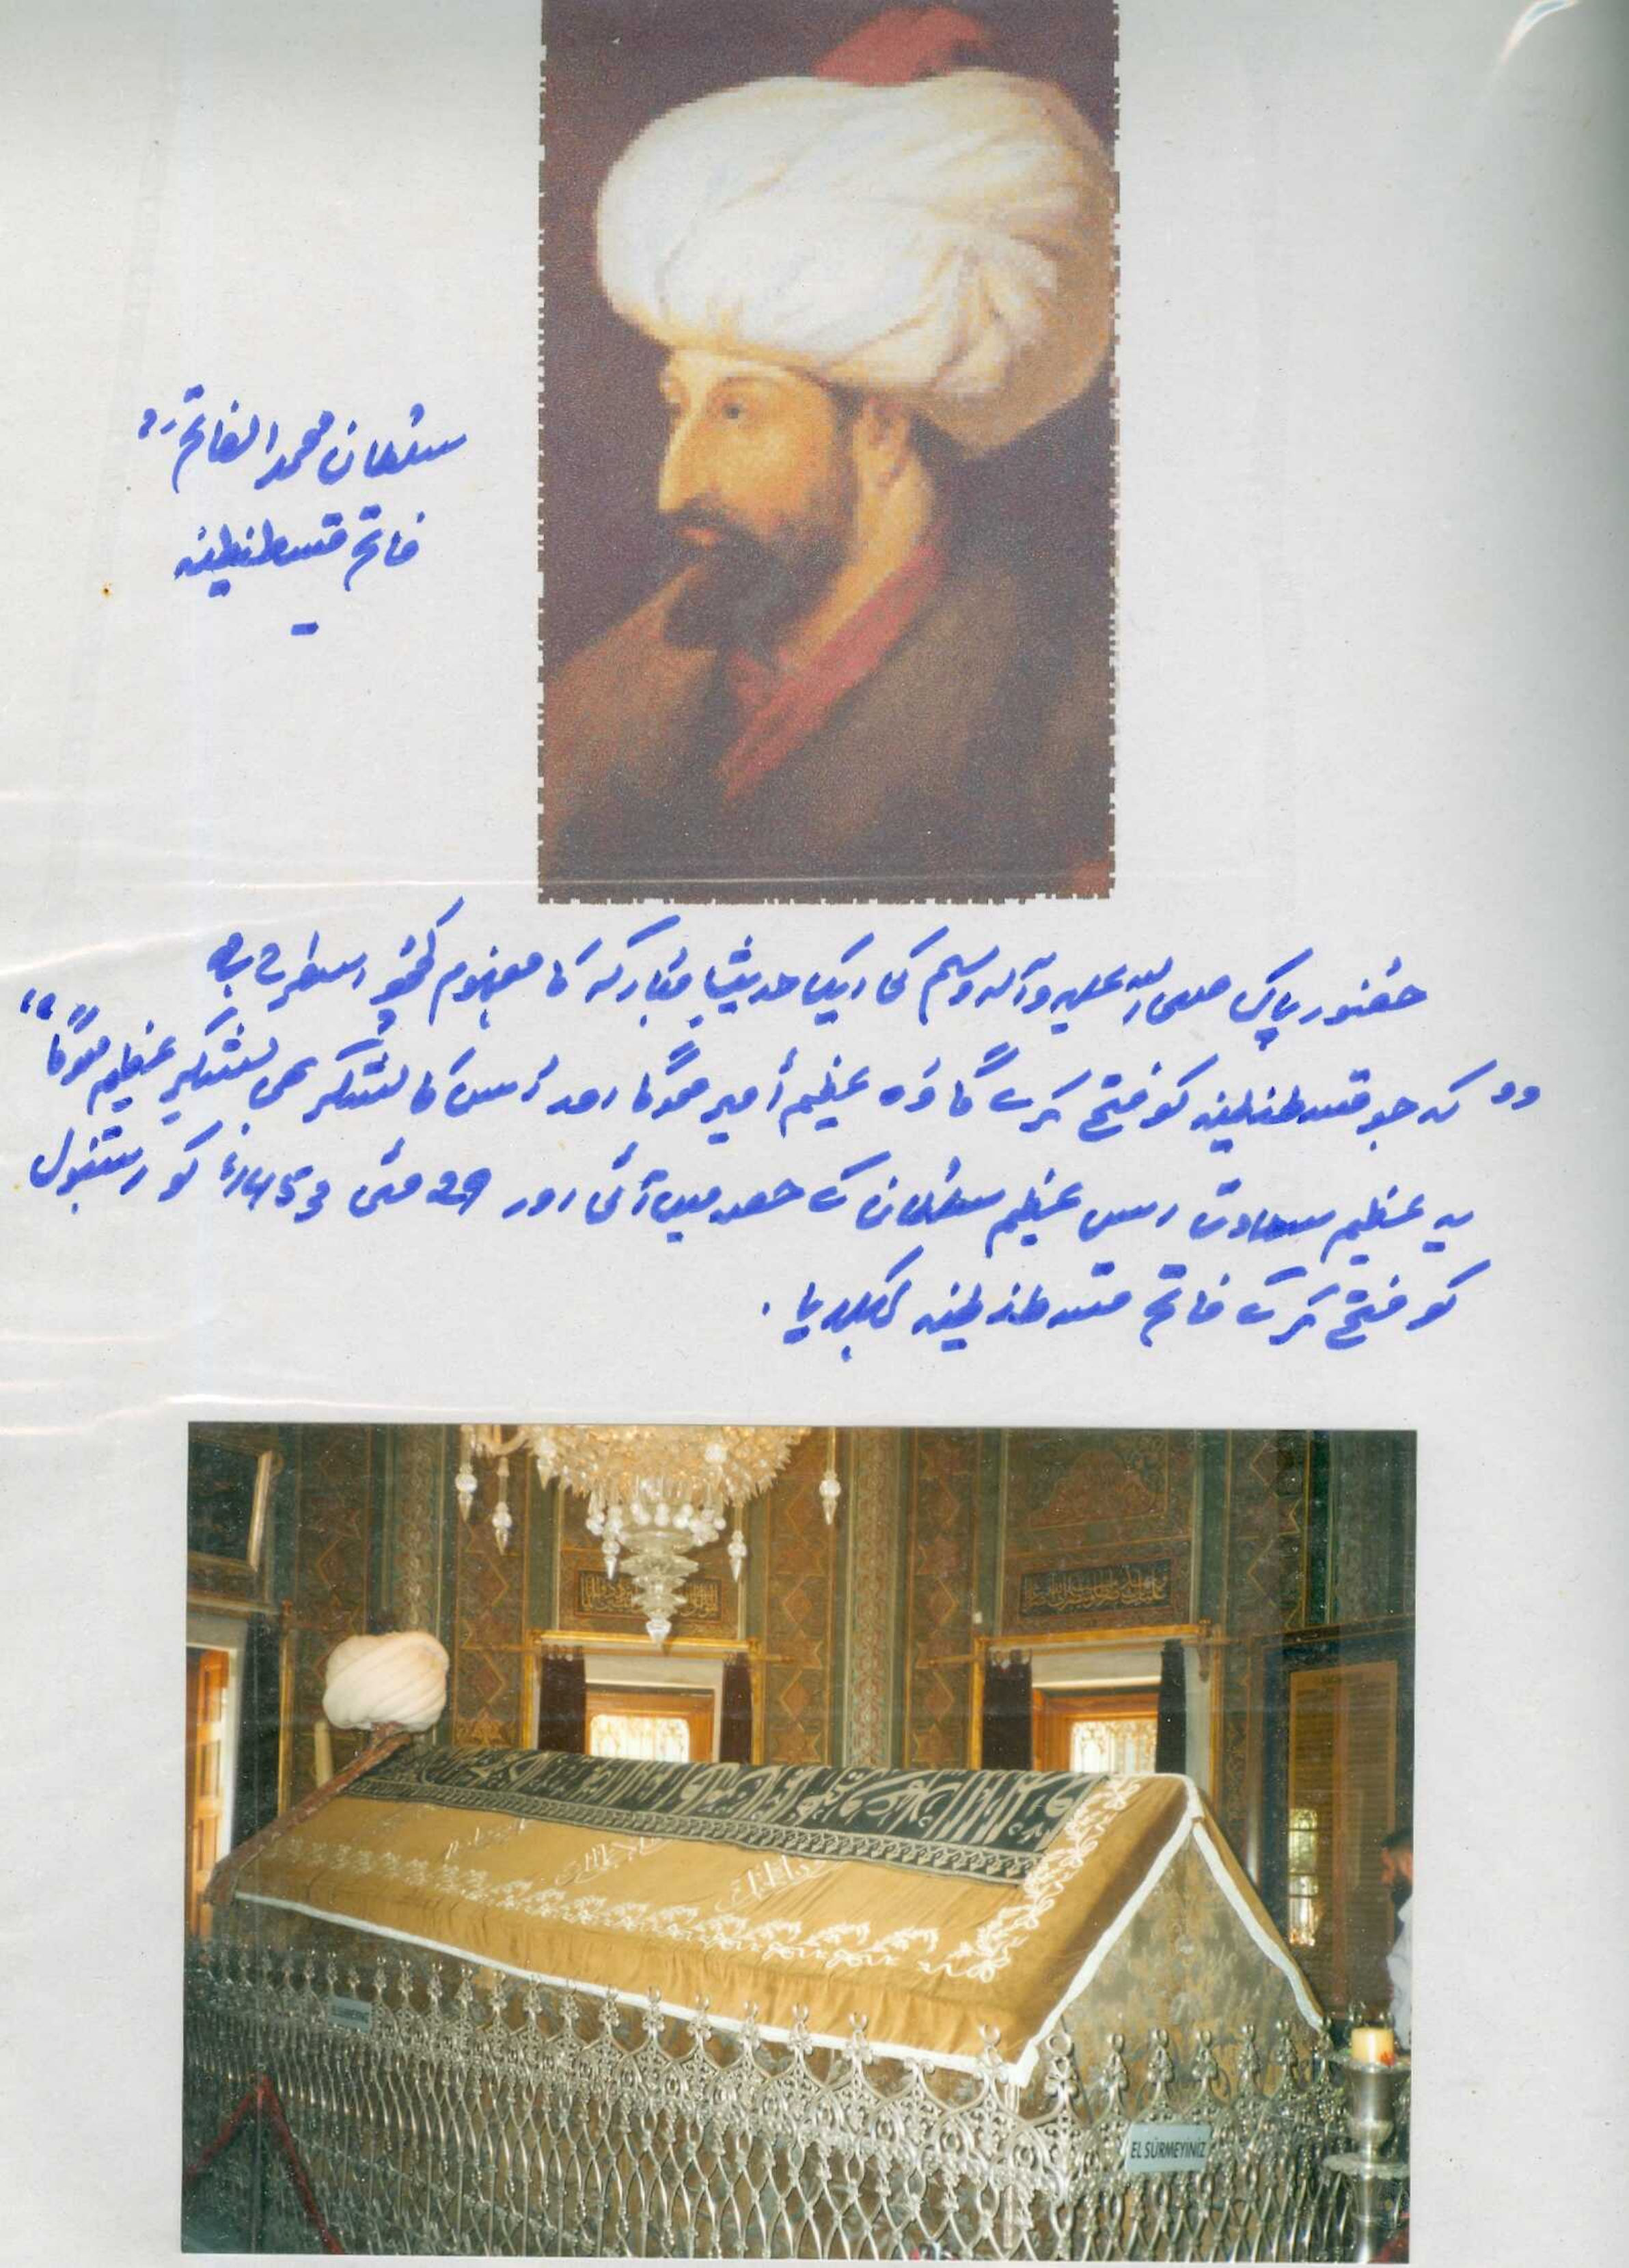 سلطان محمد الفاتحؒ
فاتح قسطنطینہ
حضور پاک صلی اللہ علیہ وآلہ وسلم کی ایک حدیثِ مبارکہ کا مفہوم کچھ اسطرح ہے
"کہ جو قسطنطینہ کو فتح کرے گا وہ عظیم أمیر ہوگا اور اُس کا لشکر بھی لشکرِ عظیم ہوگا"
یہ عظیم سعادت اس عظیم سلطان کے حصہ میں آئی اور 29 مئی 1453ء کو استنبول
کو فتح کرکے فاتح قسطنطینہ کہلایا.
EL SÜRMEYİNİZ